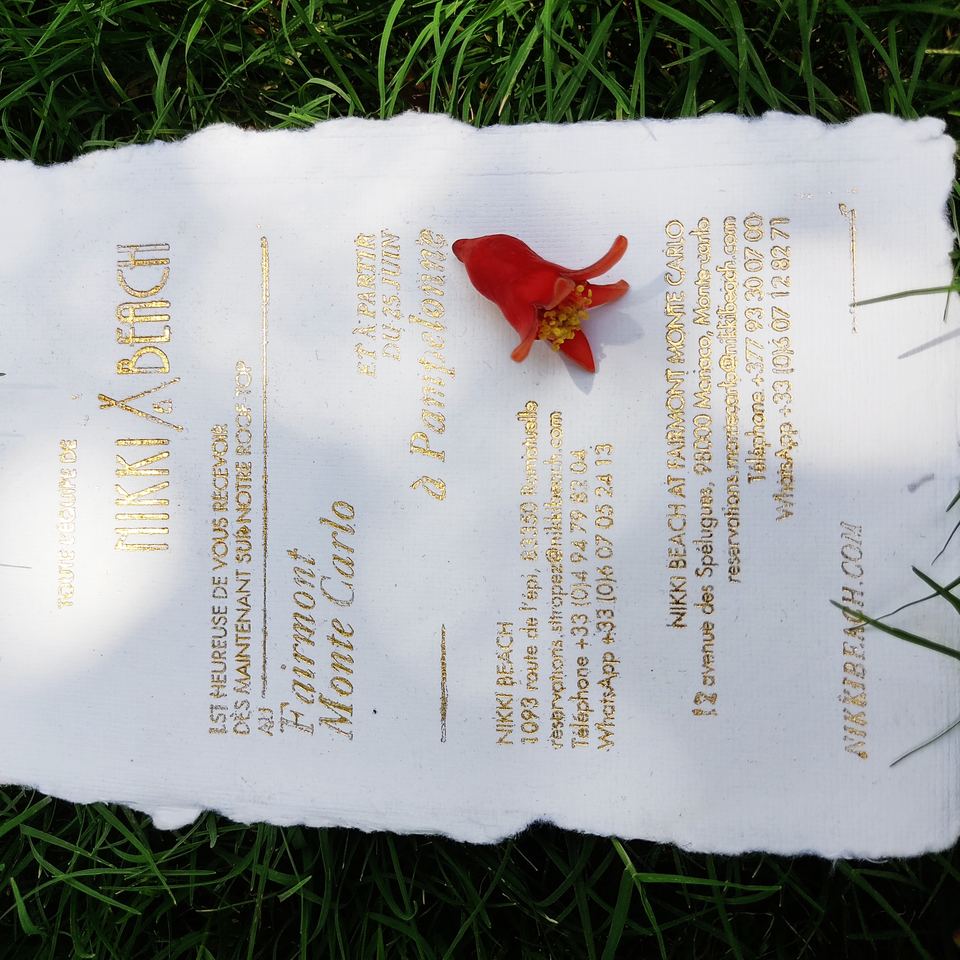 TOUTE L'ÉQUIPE DE
NIKKI BEACH
EST HEUREUSE DE VOUS RECEVOIR
DÈS MAINTENANT SUR NOTRE ROOFTOP
AU
Fairmont
Monte Carlo
ET À PARTIR
DU 25 JUIN
à Pampelonne
NIKKI BEACH
1093 route de l'épi, 83350 Ramatuelle
reservations.sttropez@nikkibeach.com
Téléphone +33 (0)4 94 79 82 04
WhatsApp +33 (0)6 07 05 24 13
NIKKI BEACH AT FAIRMONT MONTE CARLO
12 avenue des Spélugues, 98000 Monaco, Monte-carlo
reservations.montecarlo@nikkibeach.com
Téléphone +377 93 30 07 00
WhatsApp +33 (0)6 07 12 82 71
NIKKIBEACH.COM